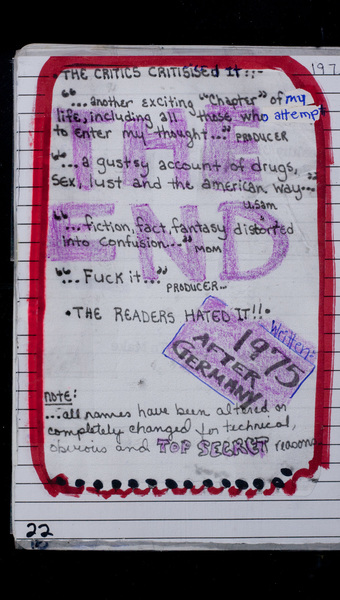 197
• THE CRITICS CRITISISED It !! -
"... another exciting "Chapter" of my
life, including all those who attempt
to enter my thought..." PRODUCER
"...a gustsy account of drugs,
sex, lust and the american way..."
u.sam
"...fiction, fact, fantasy distorted
into confusion..." MOM
"... Fuck it..."
PRODUCER...
THE
END
• THE READERS HATED IT!! •
Written:
1975
AFTER
GERMANY
note:
...all names have been altered or
completely changed for technical,
obvious and TOP SECRET reasons
22